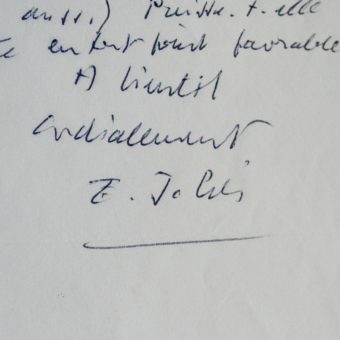 auss.) Puisse-t-elle
en tout point favorable
A bientôt
Cordialement